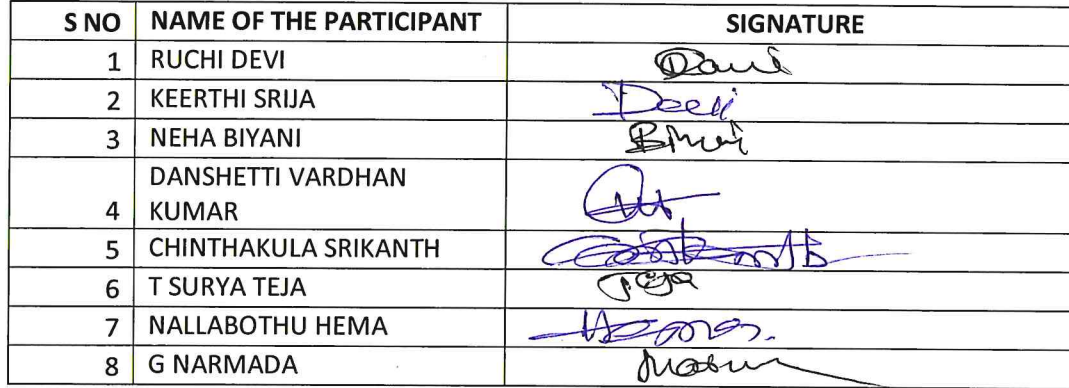 S NO NAME OF THE PARTICIPANT SIGNATURE
1 RUCHI DEVI
2 KEERTHI SRIJA
3 NEHA BIYANI
DANSHETTI VARDHAN
4 KUMAR
5 CHINTHAKULA SRIKANTH
6 T SURYA TEJA Teja
7 NALLABOTHU HEMA
8 G NARMADA